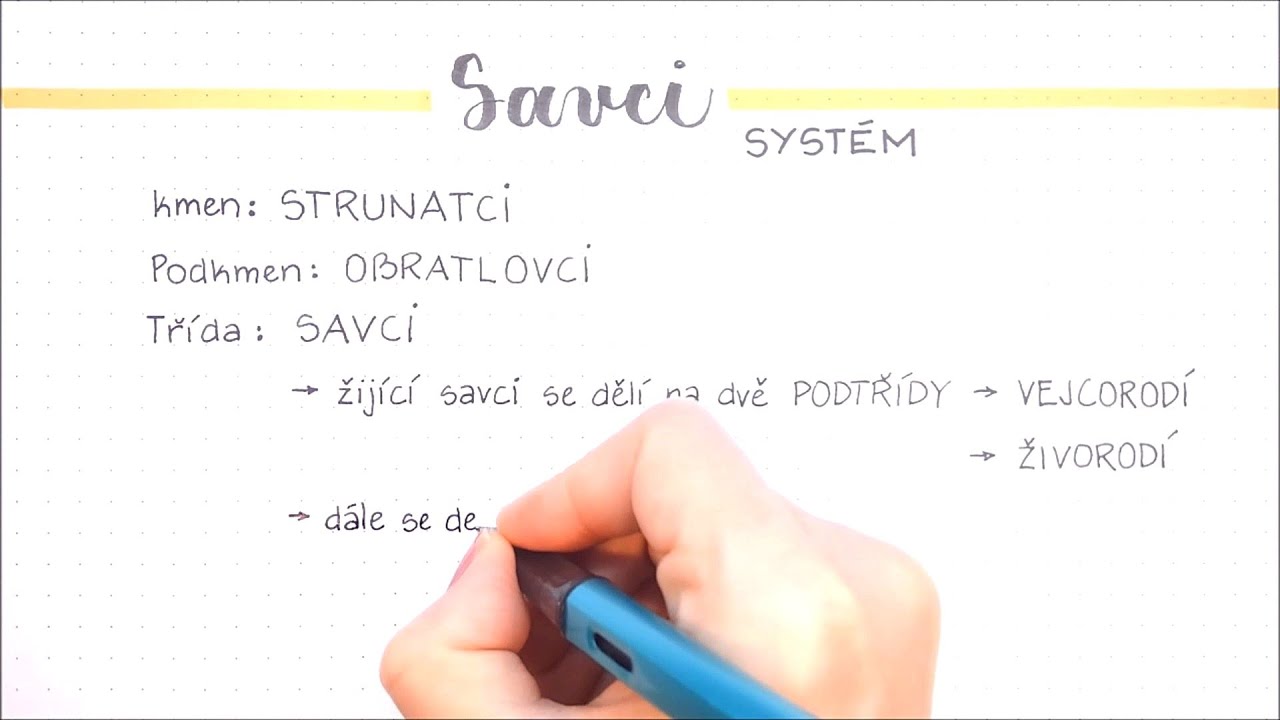 Savci
SYSTÉM
kmen: STRUNATCI
Podkmen: OBRATLOVCI
Třída: SAVCI
→ žijící savci se dělí na dvě PODTŘÍDY → VEJCORODÍ
→ ŽIVORODÍ
→ dále se de